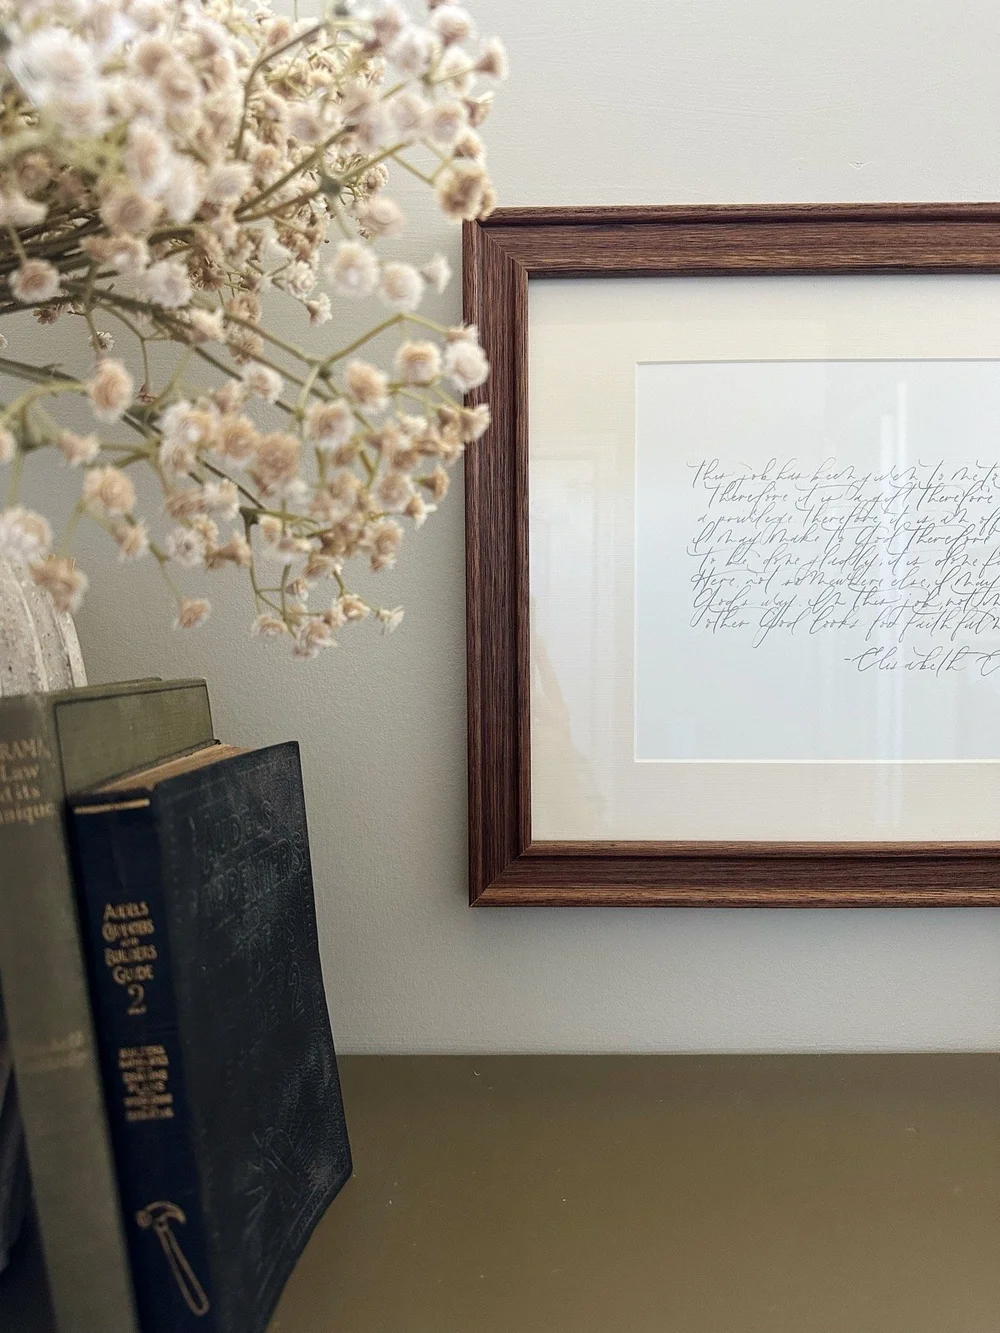 This job has been given to me to
Therefore it is a gift Therefore
a privilege Therefore, it is an
I may make to God Therefore
to be done gladly, it is done
Here, not somewhere else, I may
God's way. In this job, not in
other God looks for faithful
-Elisabeth
RAMA
Law
d its
nique
AUDELS
CARPENTERS
AND
BUILDERS
GUIDE
2
AUDELS